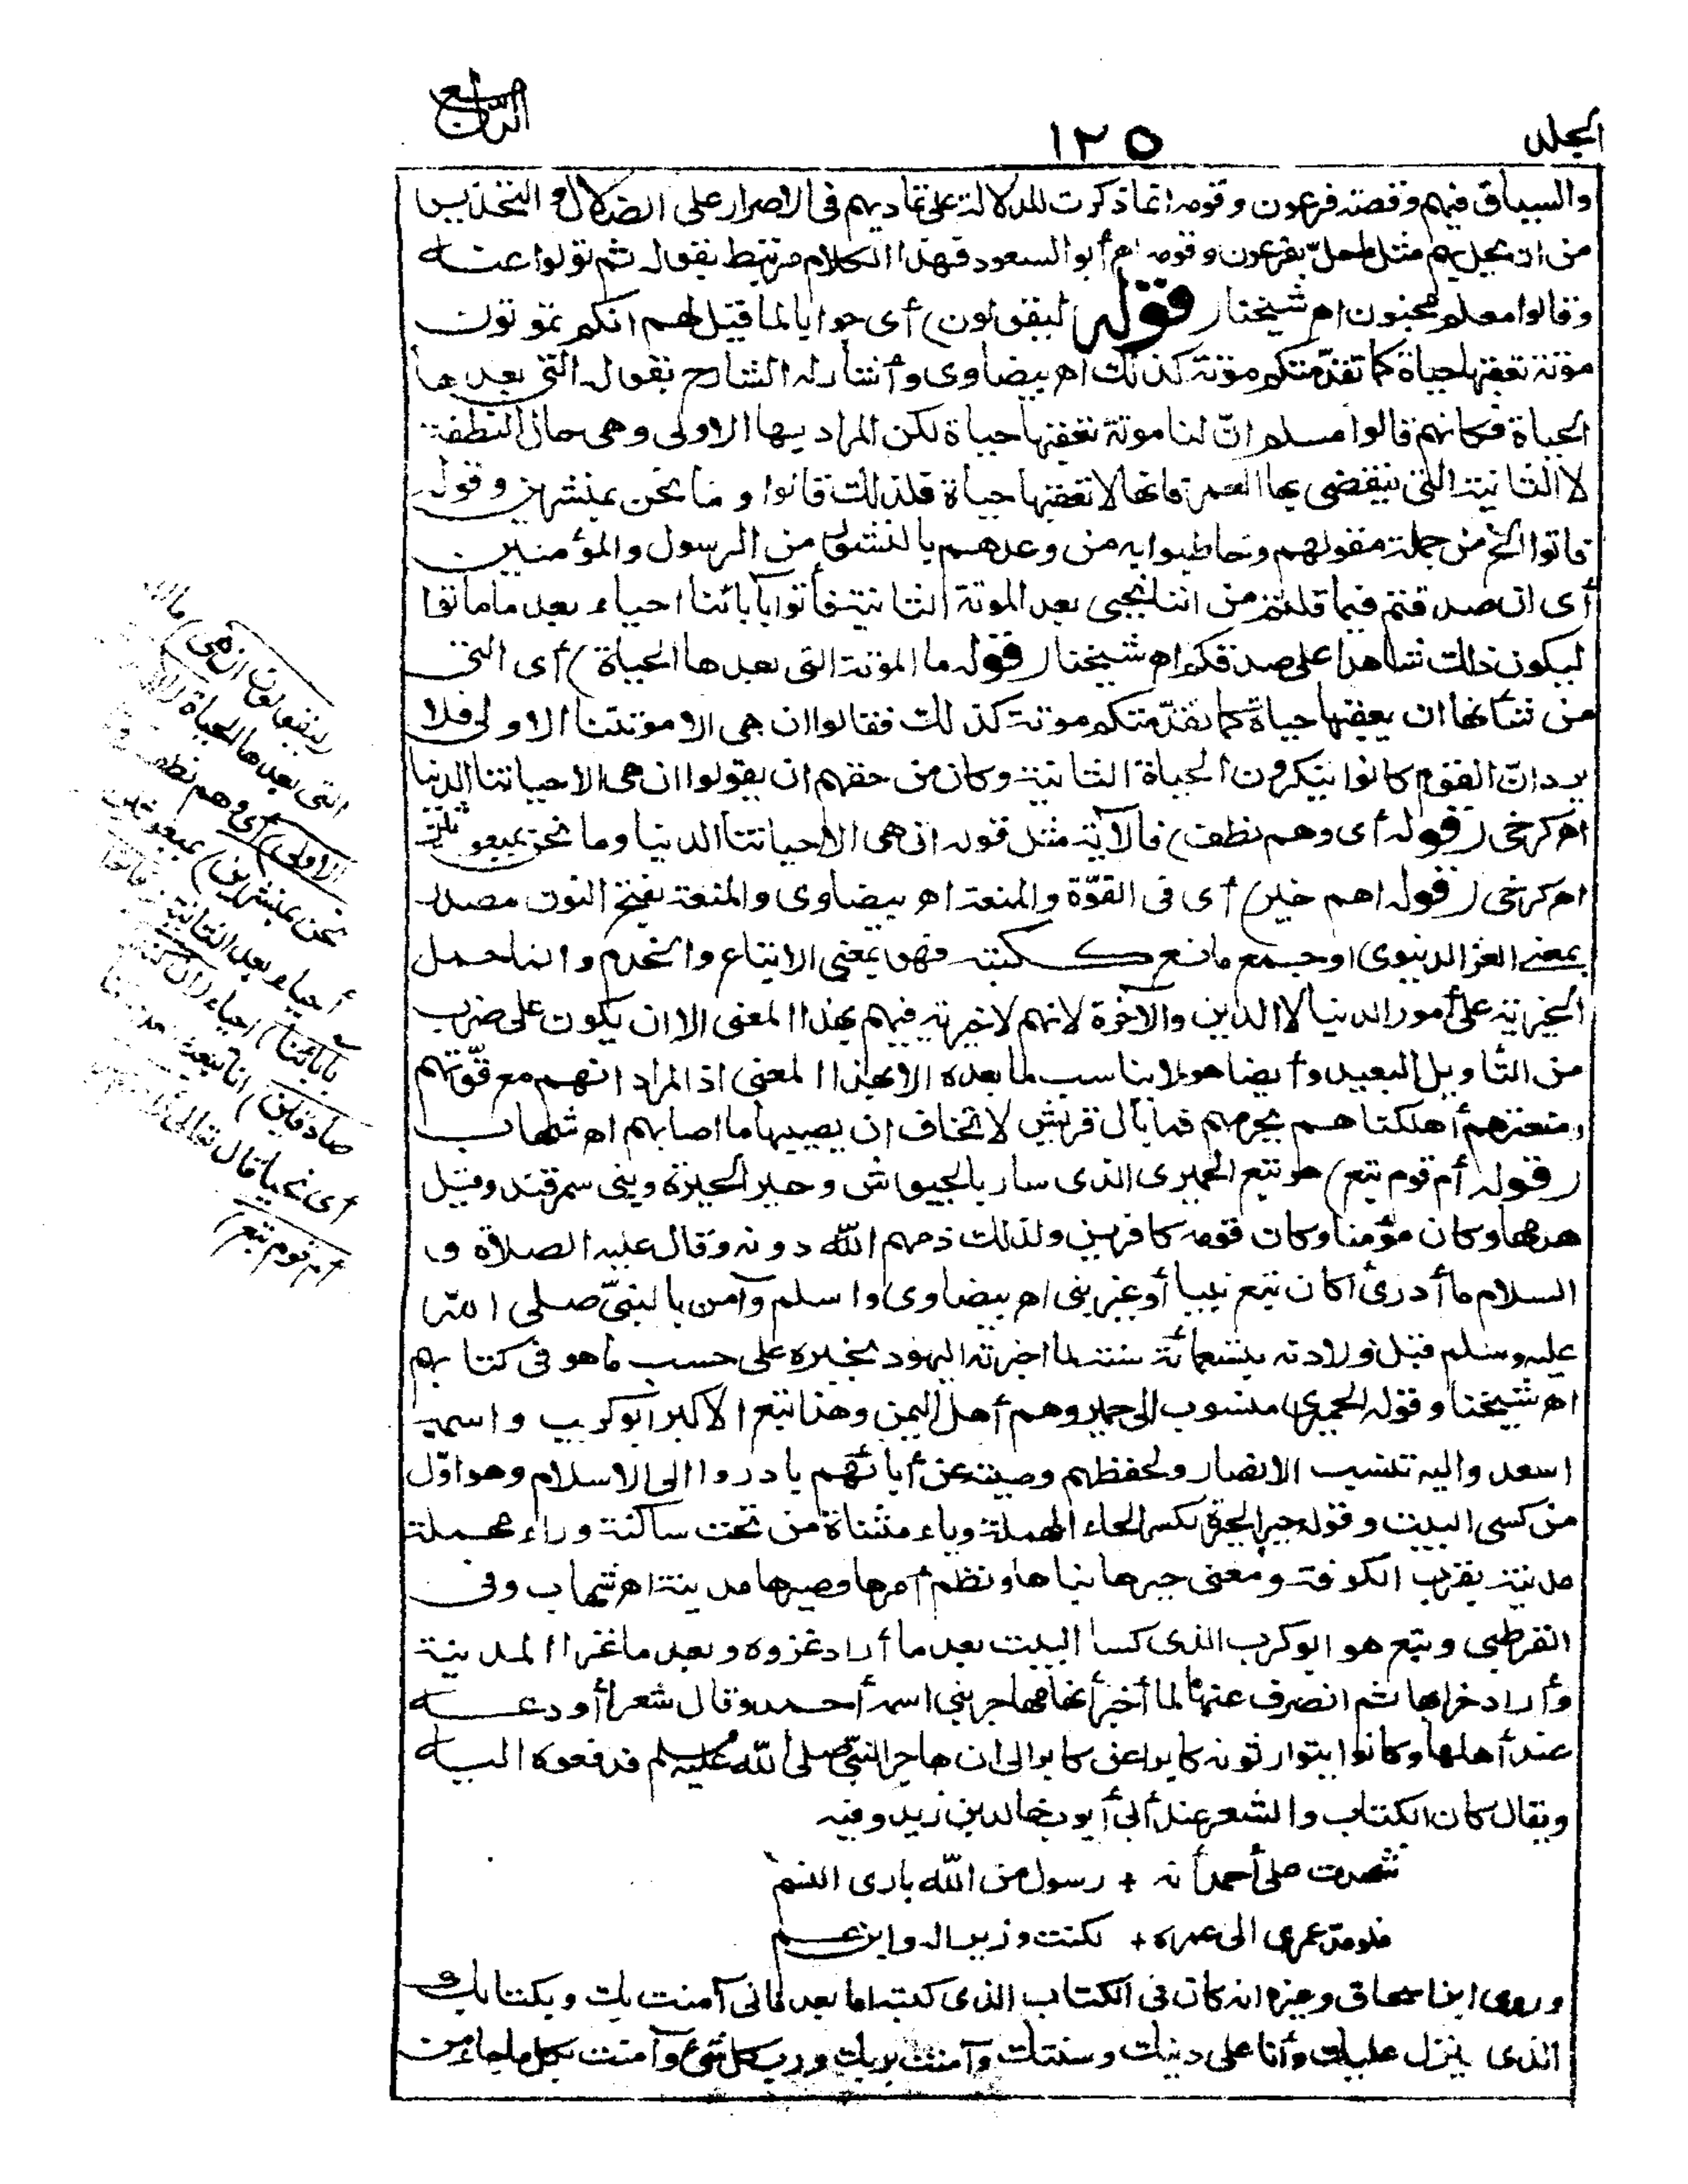 المجلد
١٢٥
الرابع
والسياق فيهم وقصته فرعون وقومه انما ذكرت للدلالة على تماديهم فى الاصرار على الضلال والتحذير
من ان يحل بهم مثل ماحل بفرعون وقومه اھ أبو السعود فهذا الكلام مرتبط بقوله ثم تولوا عنه
وقالوا معلم مجنون اھ شيخنا (قوله ليقولون) أى جوابا لما قيل لهم انكم تموتون
موتة تعقبها حياة كما تقدّمتكم موتة كذلك اھ بيضاوى وأشار له الشارح بقوله التى بعدها
الحياة فكانهم قالوا مسلم انّ لنا موتة تعقبها حياة لكن المراد بها الاولى وهى حال النطفة
لا الثانية التى ينقضى بها العمر فانها لا تعقبها حياة فلذلك قالوا وما نحن بمنشرين وقوله
فاتوا الخ من جملة مقولهم وخاطبوا به من وعدهم بالنشور من الرسول والمؤمنين
أى ان صدقتم فيما قلتم من اننا نحيى بعد الموتة الثانية فأتوا بآبائنا احياء بعد ما ماتوا
ليكون ذلك شاهدا على صدقكم اھ شيخنا (قوله ما الموتة التى بعدها الحياة) أى التى
من شأنها ان يعقبها حياة كما تقدّمتكم موتة كذلك فقالوا ان هى الا موتتنا الاولى فلا
يرد انّ القوم كانوا ينكرون الحياة الثانية وكان من حقهم ان يقولوا ان هى الا حياتنا الدنيا
اھ كرخى (قوله أى وهم نطف) فالآية مثل قوله ان هى الا حياتنا الدنيا وما نحن بمبعوثين
اھ كرخى (قوله اهم خير) أى فى القوّة والمنعة اھ بيضاوى والمنعة بفتح النون مصدر
بمعنى العز الدنيوى او جمع مانع ككتبة فهو بمعنى الاتباع والخدم وانما حمل
الخيرية على أمور الدنيا لا الدين والآخرة لانهم لا خيرية فيهم بهذا المعنى الا ان يكون على ضرب
من التأويل البعيد وأيضا هو لا يناسب لما بعده الا بهذا المعنى اذ المراد انهم مع قوّتهم
ومنعتهم أهلكناهم بجرمهم فما بال قريش لا تخاف ان يصيبها ما اصابهم اھ شهاب
(قوله أم قوم تبع) هو تبع الحميرى الذى سار بالجيوش وحير الحيرة وبنى سمرقند وقيل
هدمها وكان مؤمنا وكان قومه كافرين ولذلك ذمهم الله دونه وقال عليه الصلاة و
السلام ما أدرى أكان تبع نبيا أو غير نبى اھ بيضاوى واسلم وآمن بالنبىّ صلى الله
عليه وسلم قبل ولادته بتسعمائة سنة لما اخبرته اليهود بخبره على حسب ما هو فى كتابهم
اھ شيخنا وقوله الحميرى منسوب الى حمير وهم أهل اليمن وهذا تبع الاكبر ابو كرب واسمه
اسعد واليه تنسب الانصار ولحفظهم وصيته عن أبائهم بادروا الى الاسلام وهو اوّل
من كسى البيت وقوله حير الحيرة بكسر الحاء المهملة وياء مثناة من تحت ساكنة وراء مهملة
مدينة بقرب الكوفة ومعنى حيرها بناها ونظم أمرها وصيرها مدينة اھ شهاب وفى
القرطبى وتبع هو ابو كرب الذى كسا البيت بعد ما أراد غزوه وبعد ما غزا المدينة
وأراد خرابها ثم انصرف عنها لما أخبر أنها مهاجر نبى اسمه أحمد وقال شعرا أودعه
عند أهلها وكانوا يتوارثونه كابرا عن كابر الى ان هاجر النبىّ صلى الله عليه وسلم فدفعوه اليه
ويقال كان الكتاب والشعر عند أبى أيوب خالد بن زيد وفيه
شهدت على أحمد أنه + رسول من الله بارى النسم
فلو مدّ عمرى الى عمره + لكنت وزيرا له وابن عم
وروى ابن اسحاق وغيره انه كان فى الكتاب الذى كتبه اما بعد فانى آمنت بك وبكتابك
الذى ينزل عليك وأنا على دينك وسنتك وآمنت بربك ورب كل شئ وآمنت بكل ما جاء من
(ليقولون ان هى) ما
التى بعدها الحياة
الاولى) أى وهم نطف
نحن بمنشرين) بمبعوثين
أحياء بعد الثانية فأتوا
بآبائنا) احياء (ان كنتم
صادقين) انا نبعث
أى نحيا قال تعالى
أم قوم تبع)